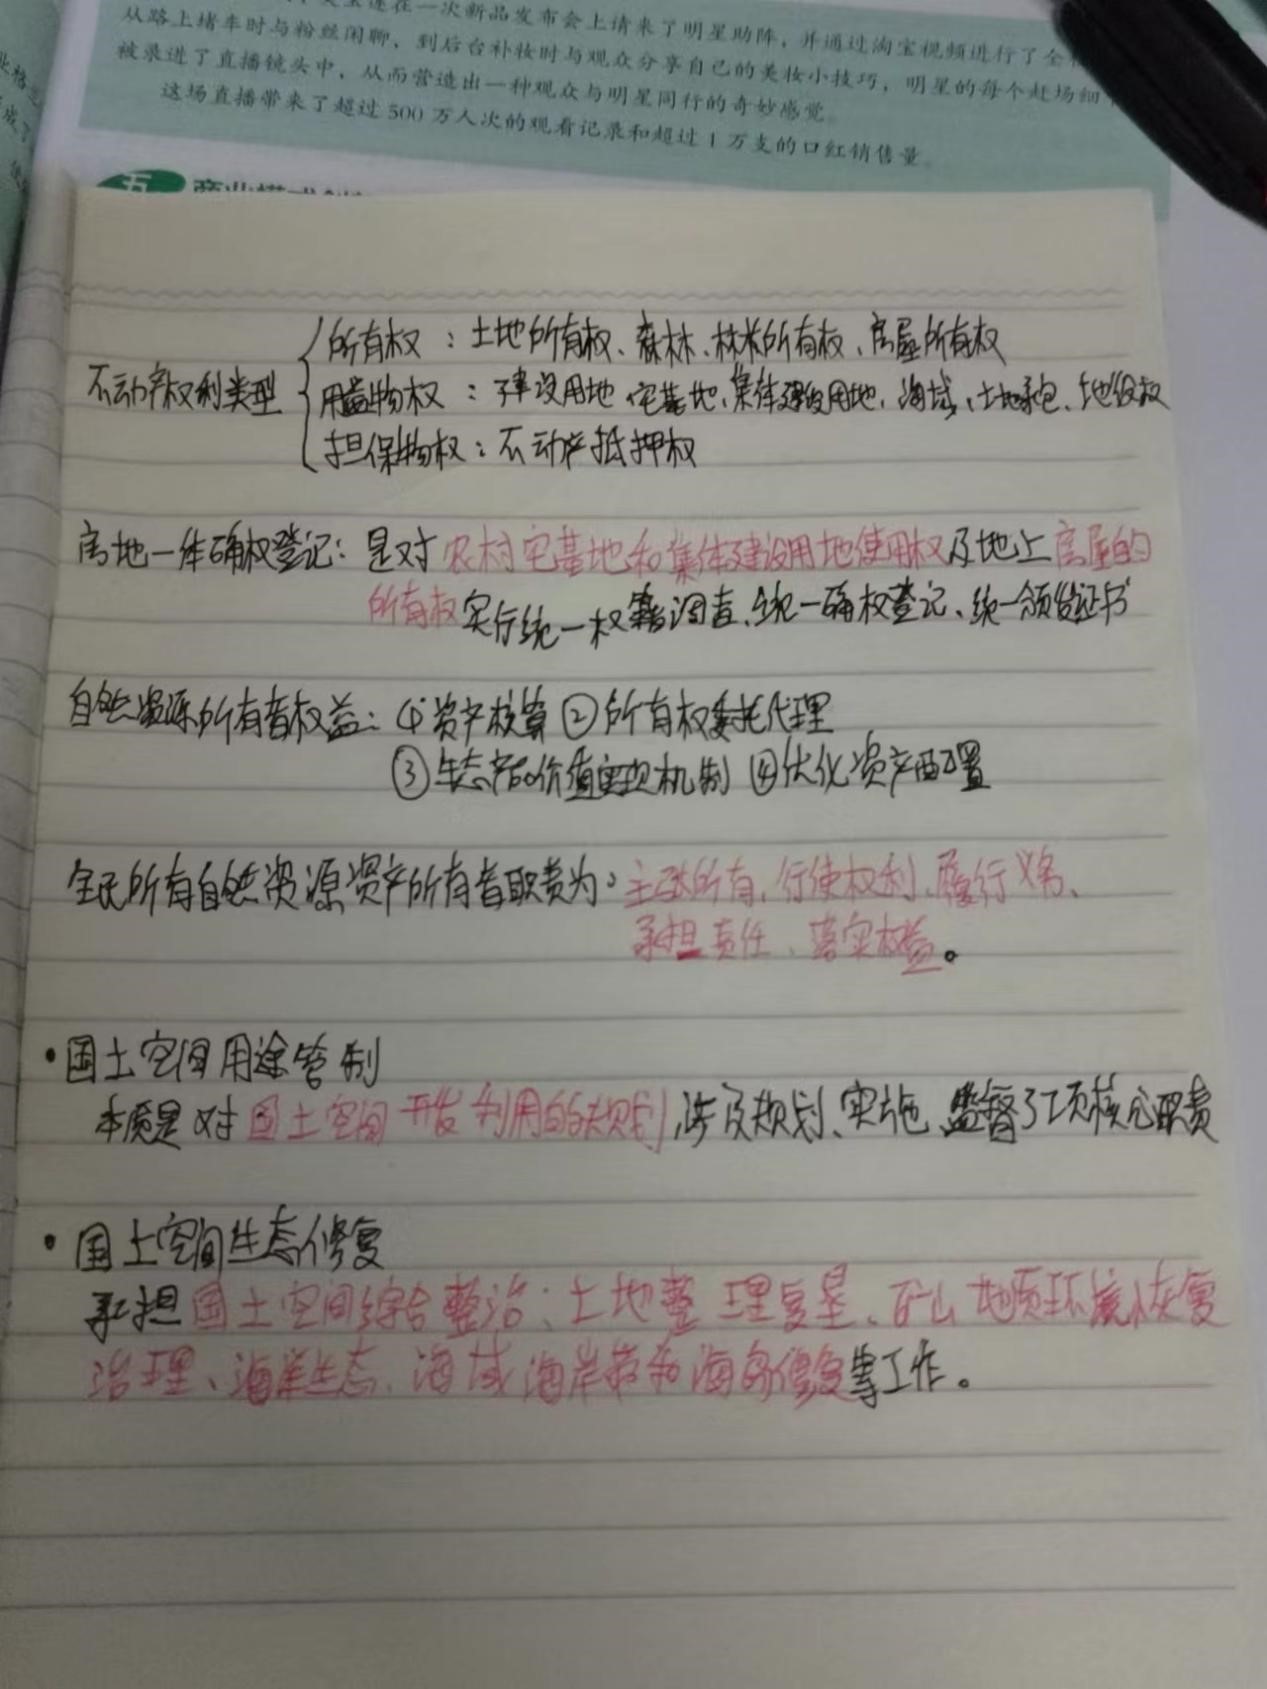 在一次新品发布会上请来了明星助阵，并通过淘宝视频进行了全
从路上堵车时与粉丝闲聊，到后台补妆时与观众分享自己的美妆小技巧，明星的每个赶场细
被录进了直播镜头中，从而营造出一种观众与明星同行的奇妙感觉。
这场直播带来了超过 500 万人次的观看记录和超过 1 万支的口红销售量。
五
不动产权利类型
所有权：土地所有权、森林、林木所有权、房屋所有权
用益物权：建设用地 宅基地、集体建设用地、海域、土地承包、地役权
担保物权：不动产抵押权
房地一体确权登记：是对农村宅基地和集体建设用地使用权及地上房屋的
所有权实行统一权籍调查、统一确权登记、统一颁发证书
自然资源所有者权益：①资产核算 ②所有权委托代理
③生态产品价值实现机制 ④优化资产配置
全民所有自然资源资产所有者职责为：主张所有、行使权利、履行义务、
承担责任、落实权益。
·国土空间用途管制
本质是对国土空间开发利用的规划，涉及规划、实施、监督3项核心职责
·国土空间生态修复
承担国土空间综合整治：土地整理复垦、矿山地质环境恢复
治理、海洋生态、海域海岸带和海岛修复等工作。